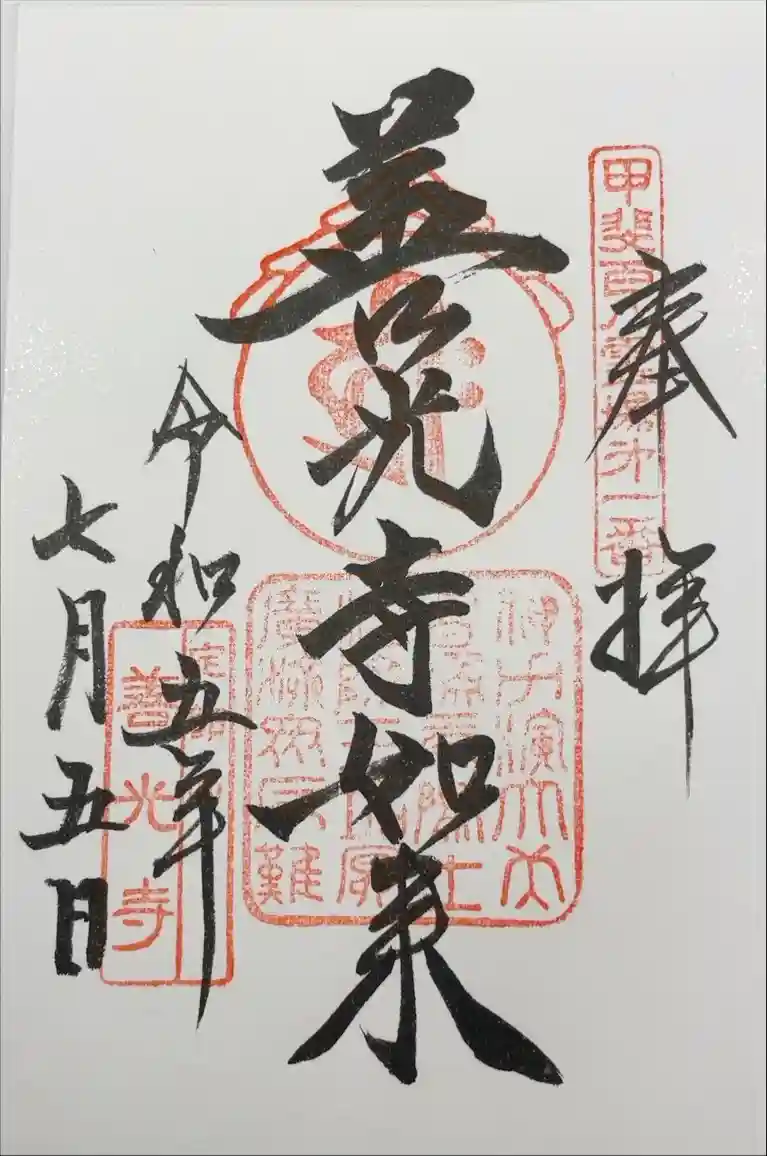 奉拝
甲斐百八霊場第一番
善光寺如来
令和五年
七月五日
定額山
善光寺